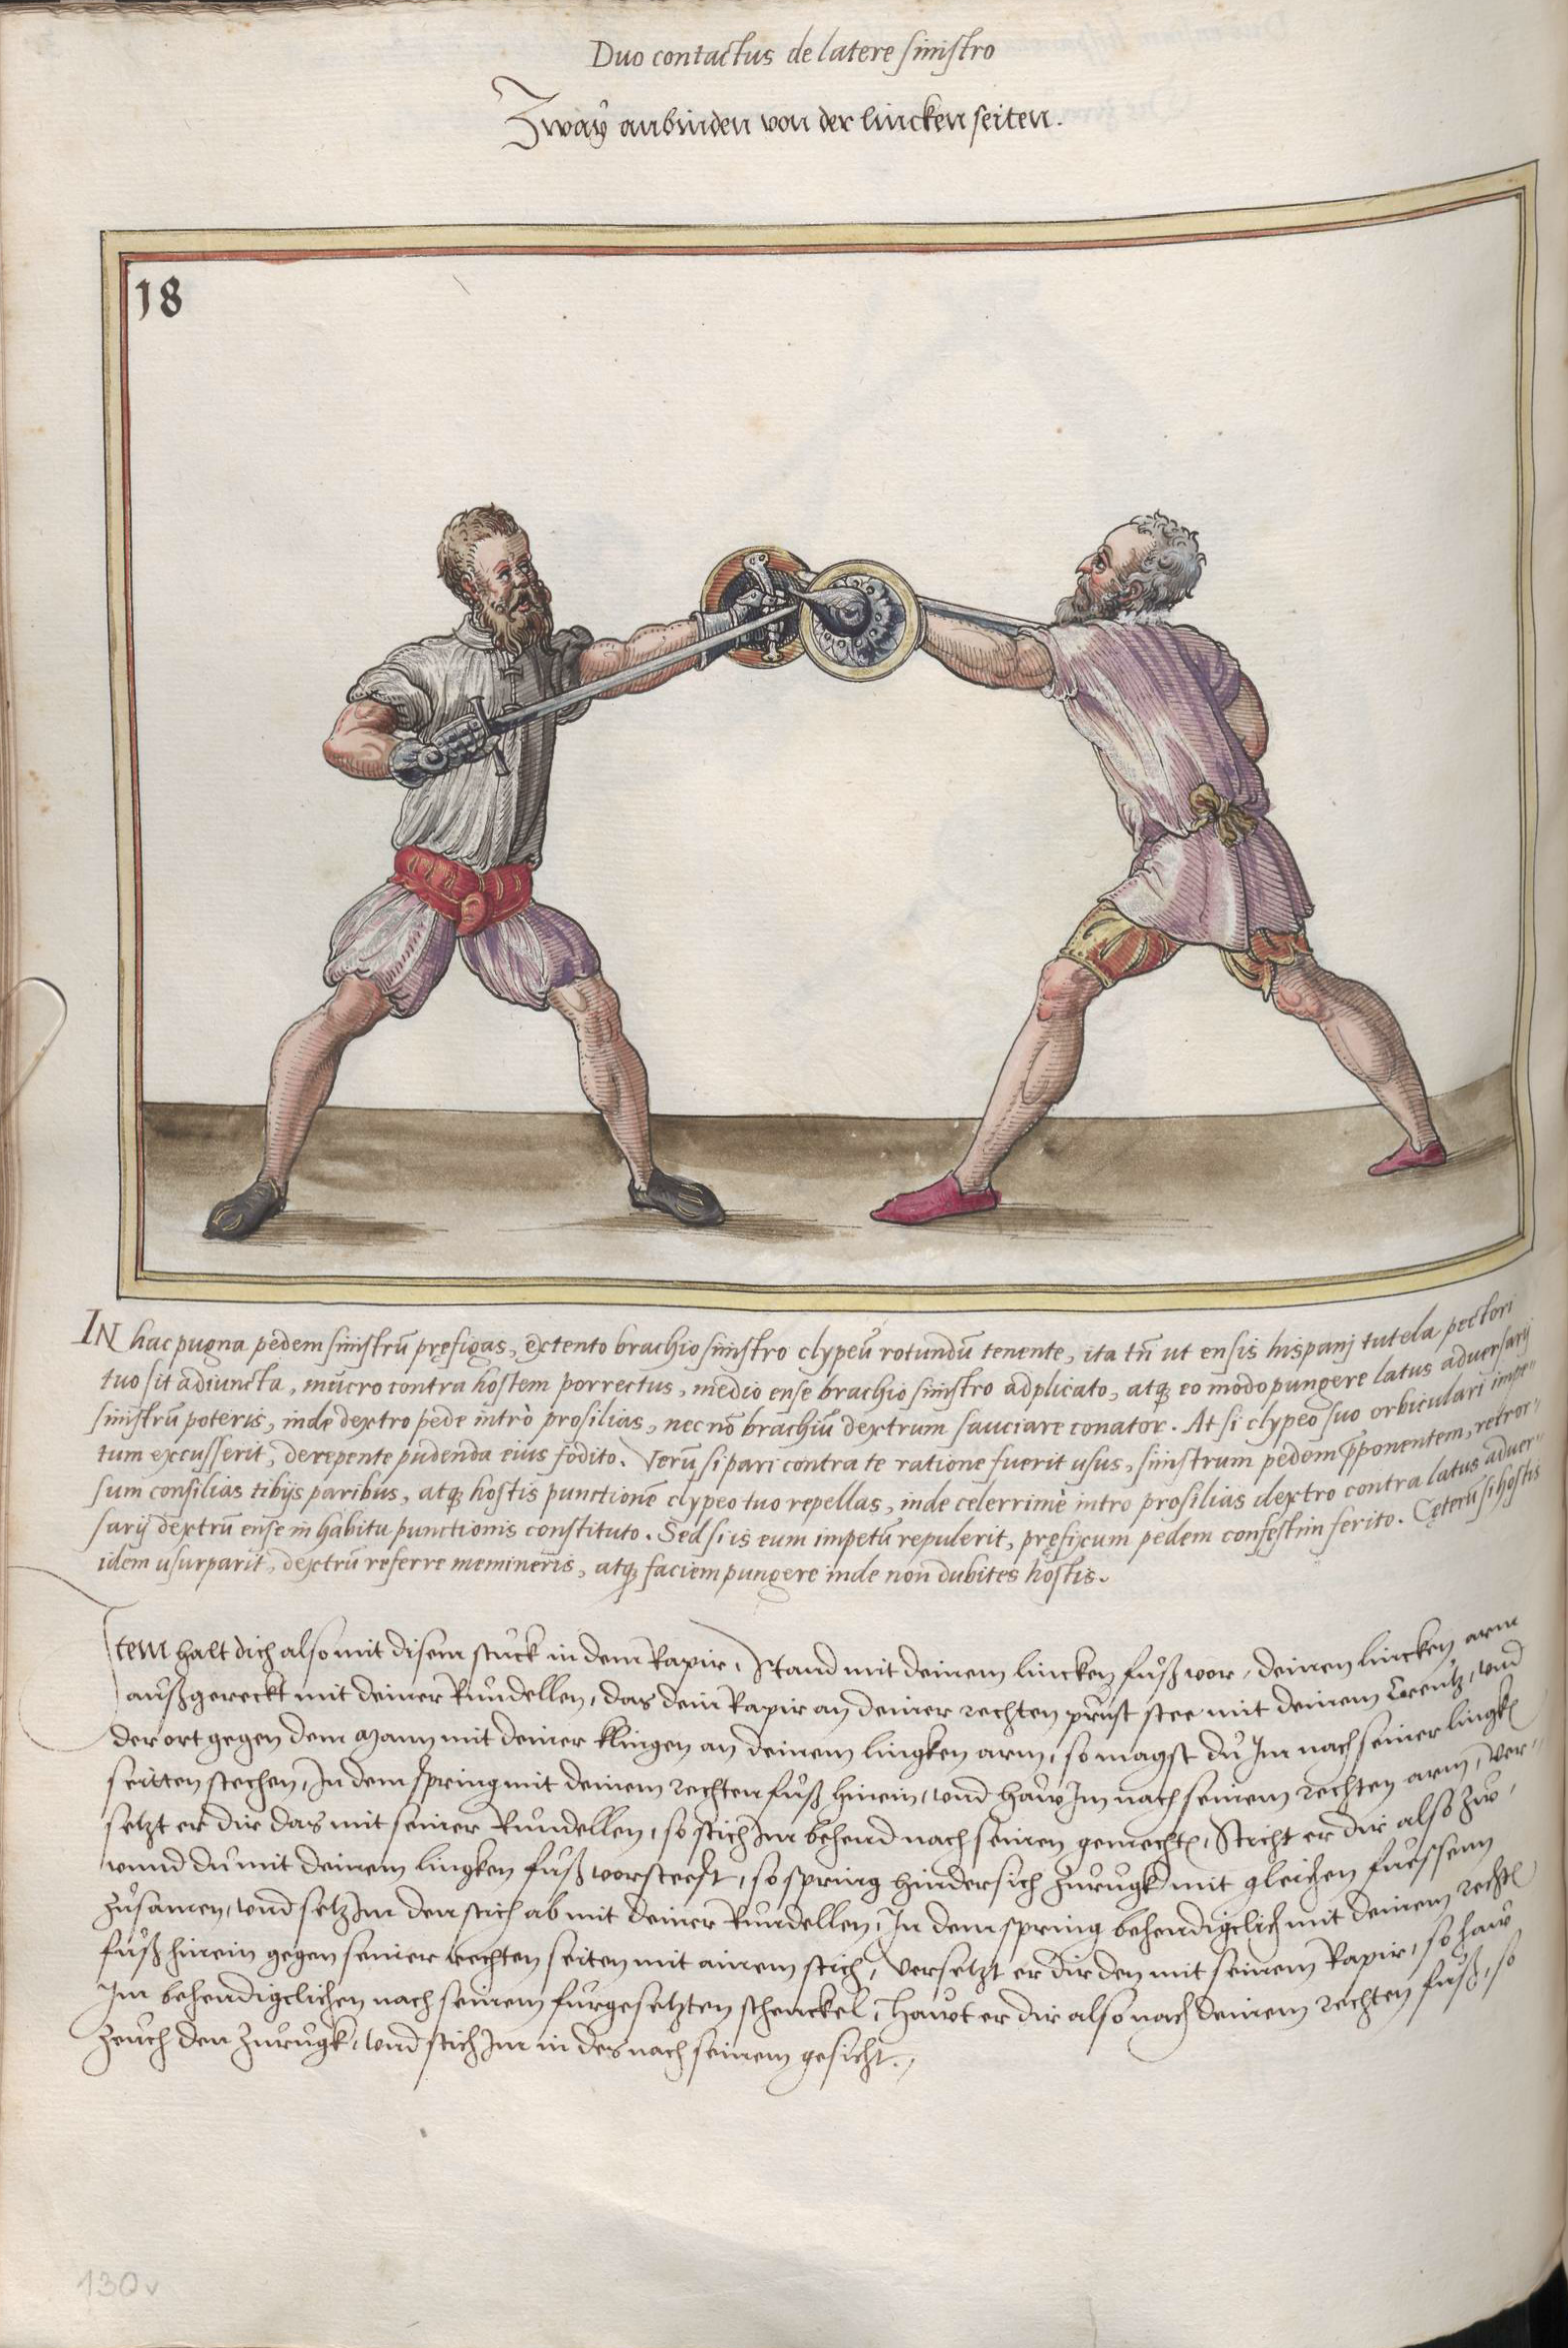 Duo contactus de latere sinistro
Zway anbinden von der lincken seiten.
18
IN hac pugna pedem sinistrũ pręfigas, extento brachio sinistro clypeũ rotundũ tenente, ita tñ ut ensis hispanj tutela pectori
tuo sit adiuncta, mucro contra hostem porrectus, medio ense brachio sinistro adplicato, atq; eo modo pungere latus adversarij
sinistrũ poteris, inde dextro pede intrò prosilias, nec nõ brachiũ dextrum sauciare conator. At si clypeo suo orbiculari impe-
tum excusserit, derepente pudenda eius fodito. Verũ si pari contra te ratione fuerit usus, sinistrum pedem p̃ponentem, retror-
sum consilias tibijs paribus, atq; hostis punctionẽ clypeo tuo repellas, inde celerrimè intro prosilias dextro contra latus adver-
sarij dextrũ ense in habitu punctionis constituto. Sed si is eum impetũ repulerit, pręfixum pedem confestim ferito. Cęterũ si hostis
idem usurparit, dextrũ referre memineris, atq; faciem pungere inde non dubites hostis.
Item halt dich also mit disem stuck in dem Rapir, Stand mit deinem lincken fuß vor, deinen lincken arm
außgereckt mit deiner Rundellen, das dein Rapir an deiner rechten prust stee mit deinem Creutz, vnd
der ort gegen dem Mann mit deiner klingen an deinem lingken arm, so magst du Im nach seiner lingkẽ
seitten stechen, In dem spring mit deinem rechten fuß hinein, vnd haw Im nach seinem rechten arm, Ver-
setzt er dir das mit seiner Rundellen, so stich Im behend nach seinen gemechtẽ, Sticht er dir also zw,
vnnd du mit deinem lingken fuß vorsteest, so spring hindersich zurugk mit gleichen fuessenn
zusamen, vnd setz Im den stich ab mit deiner Rundellen, In dem spring behendigclich mit deinem rechtẽ
fuß hinein gegen seiner rechten seiten mit ainem stich, Versetzt er dir den mit seinem Rapir, so haw
Im behendigclichen nach seinem furgesetzten schenckel, Hawt er dir also nach deinem rechten fuß, so
zeuch den zurugk, vnd stich Im in des nach seinem gesicht.
130v